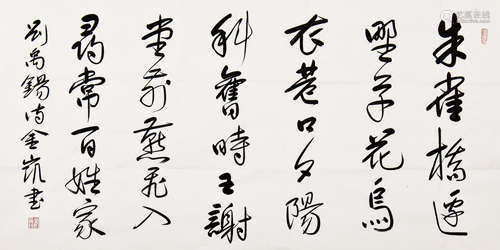 朱雀橋邊
野草花烏
衣巷口夕陽
斜舊時王謝
堂前燕飛入
尋常百姓家
劉禹錫詩金凱書